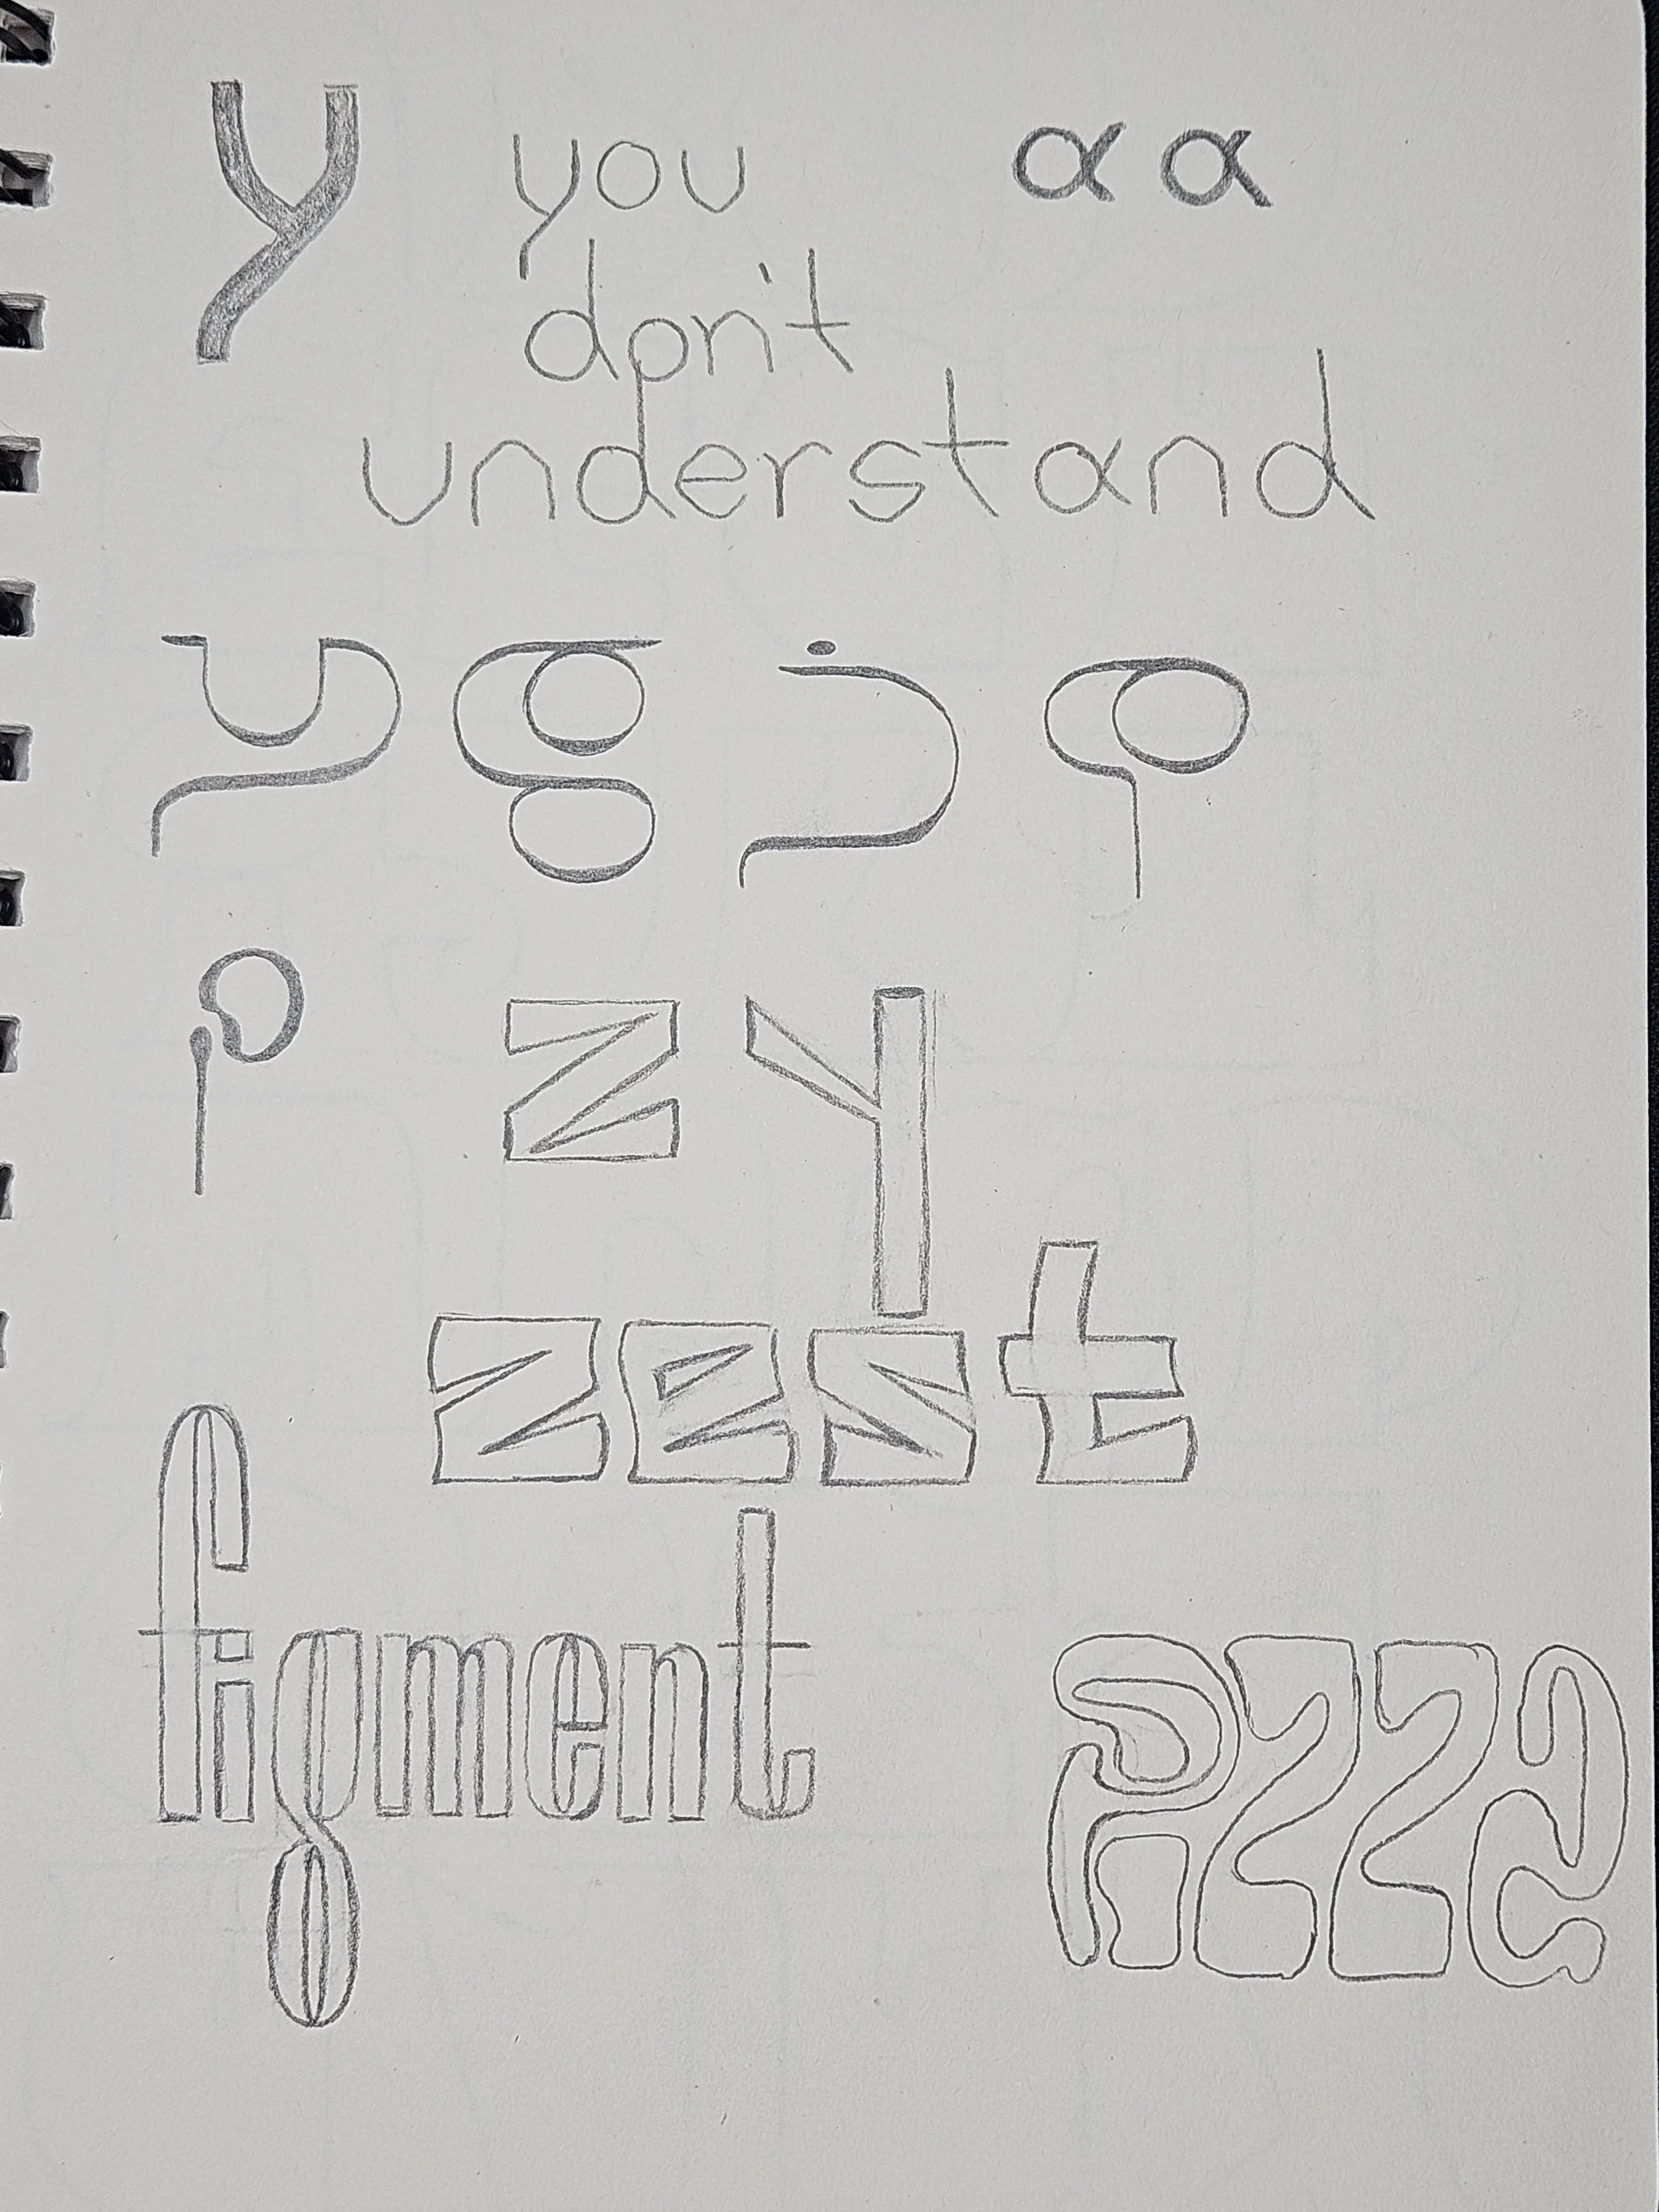 y you a a
don't
understand
y g j p
p z y
zest
figment
pizza